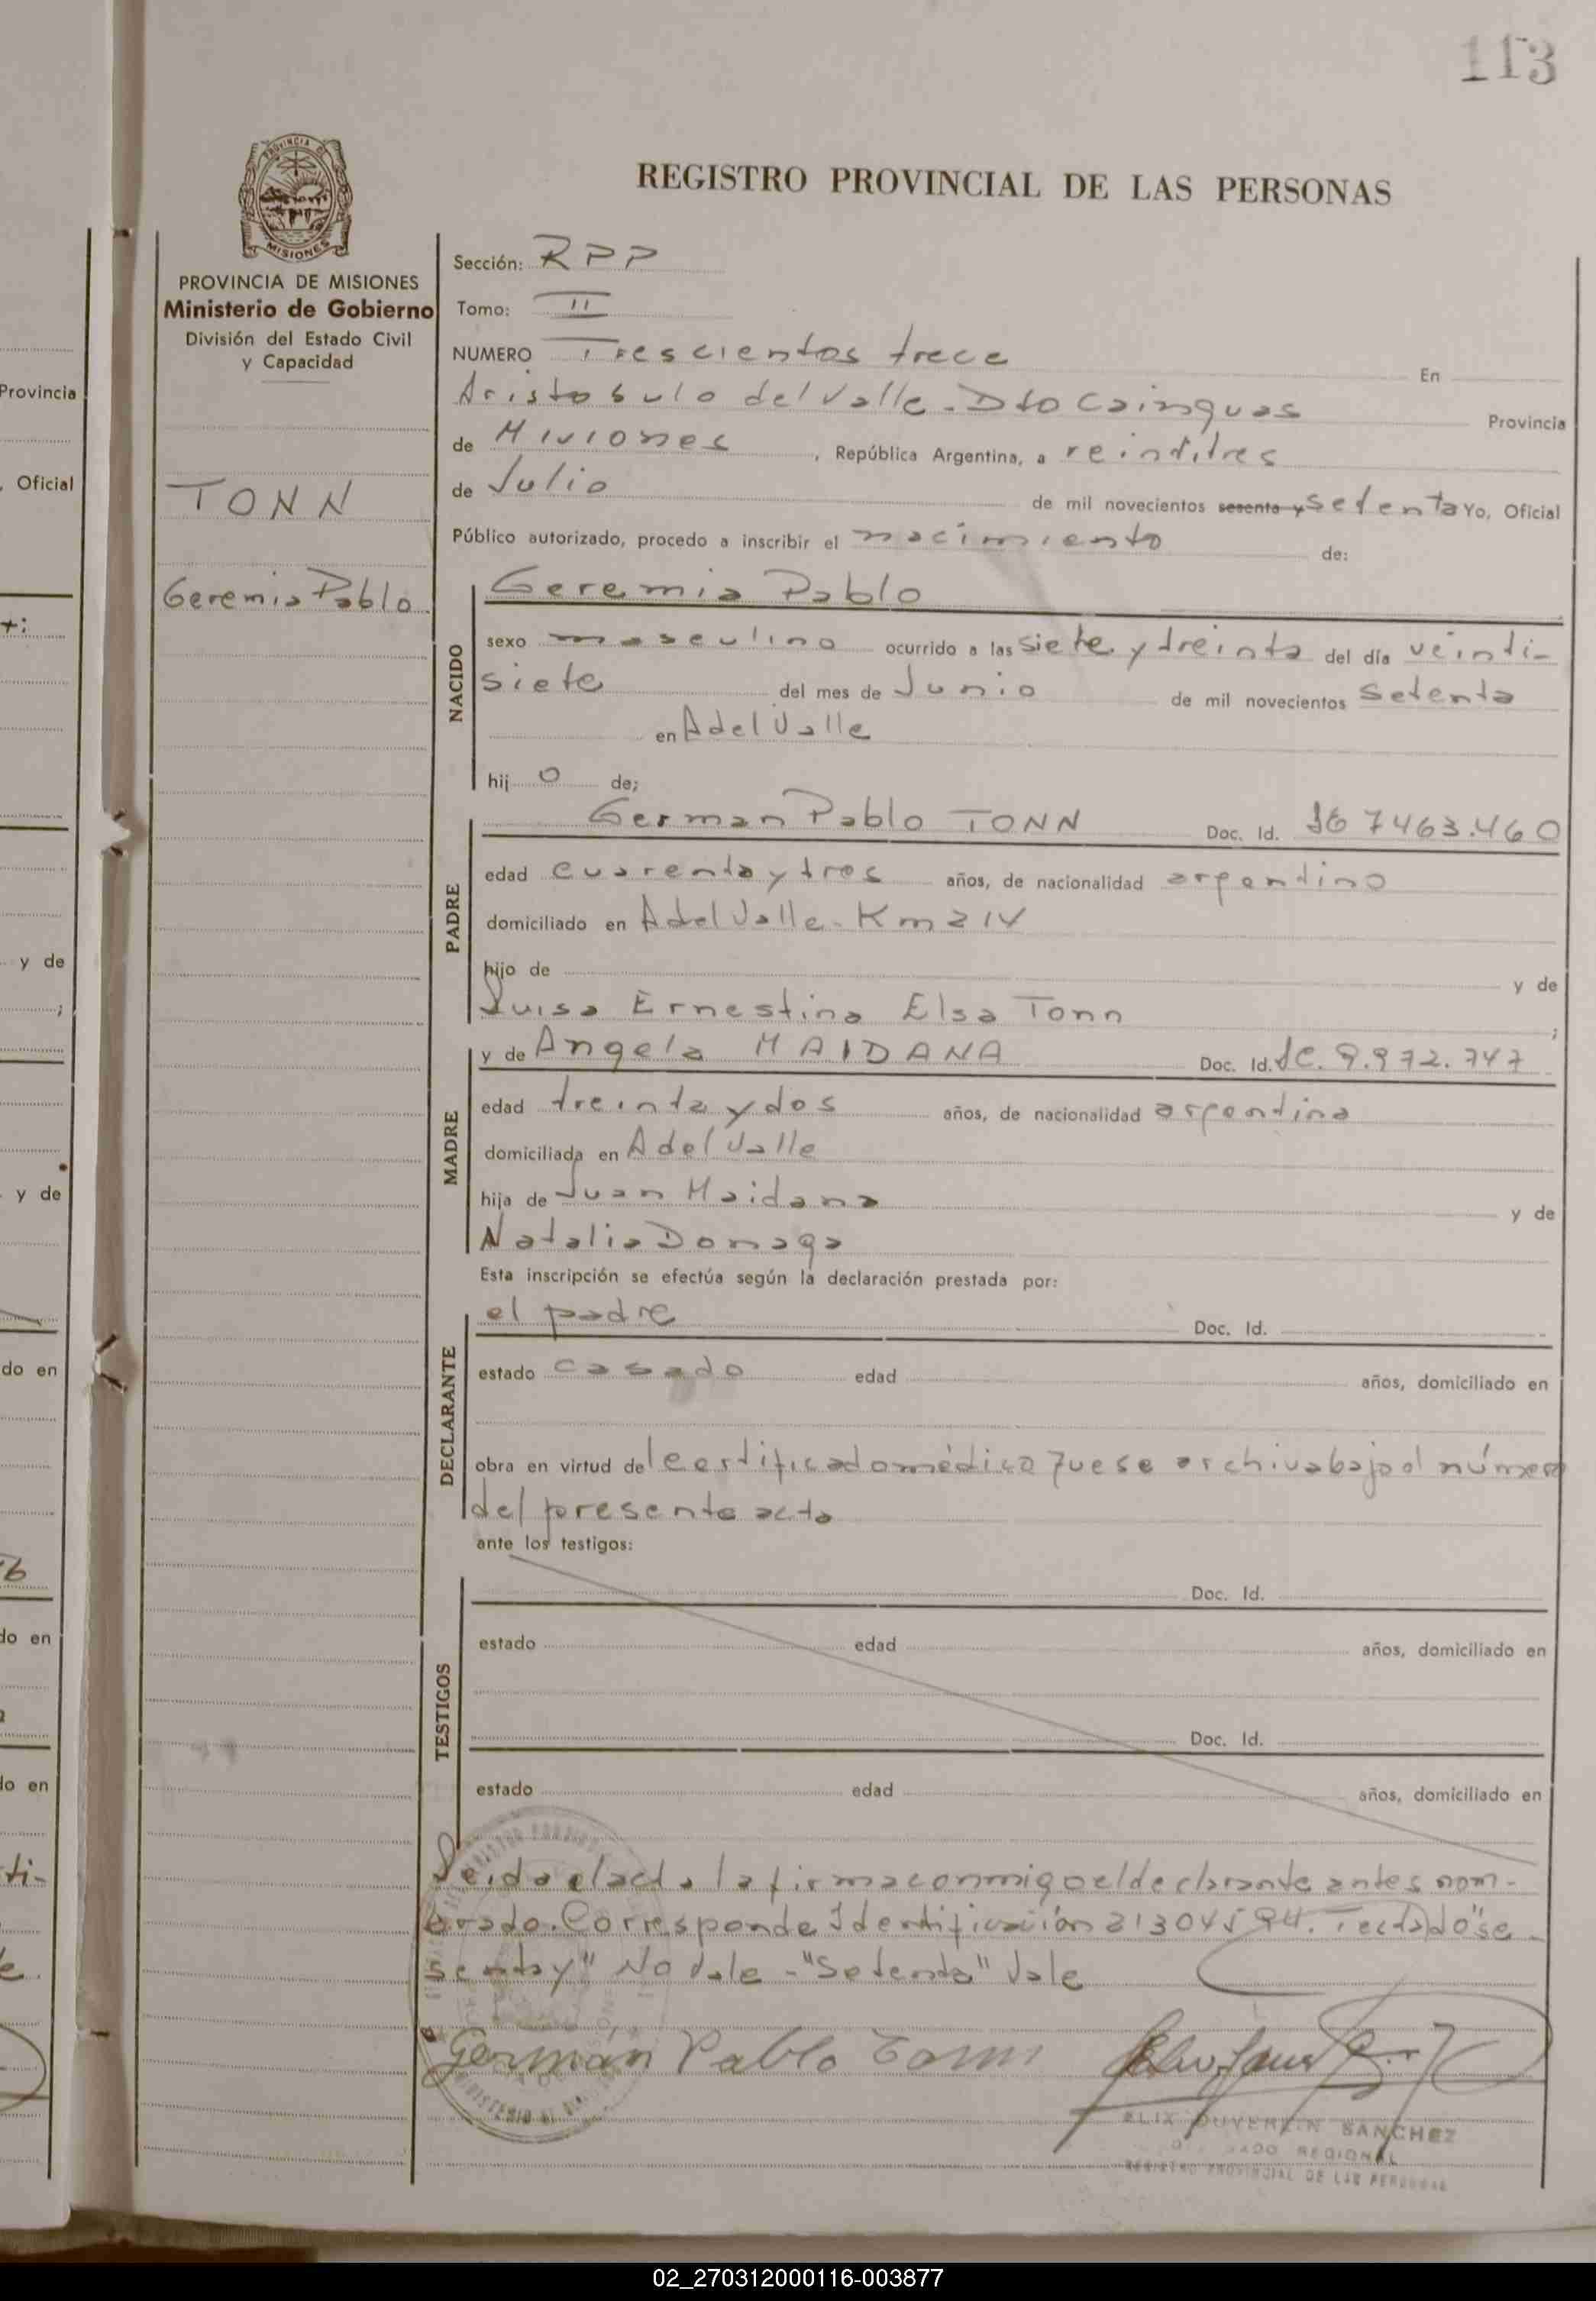 113
PROVINCIA DE
MISIONES
REGISTRO PROVINCIAL DE LAS PERSONAS
PROVINCIA DE MISIONES
Ministerio de Gobierno
División del Estado Civil
y Capacidad
TONN
Geremia Pablo
Sección: RPP
Tomo: II
NUMERO Trescientos trece En
Aristobulo del Valle - Dto Cainguas Provincia
de Misiones, República Argentina, a veintitres
de Julio de mil novecientos sesenta y Setenta Yo, Oficial
Público autorizado, procedo a inscribir el nacimiento de:
Geremia Pablo
NACIDO
sexo masculino ocurrido a las siete y treinta del día veinti-
siete del mes de Junio de mil novecientos setenta
en A del Valle
hij o de;
German Pablo TONN Doc. Id. 7463.460
PADRE
edad cuarenta y tres años, de nacionalidad argentino
domiciliado en A del Valle - Km 214
hijo de y de
Luisa Ernestina Elsa Tonn ;
MADRE
y de Angela MAIDANA Doc. Id. 9.972.747
edad treinta y dos años, de nacionalidad argentina
domiciliada en A del Valle
hija de Juan Maidana y de
Natalia
Esta inscripción se efectúa según la declaración prestada por:
el padre Doc. Id.
DECLARANTE
estado casado edad años, domiciliado en
obra en virtud del certificado médico que se archiva bajo el número
del presente acta
ante los testigos:
Doc. Id.
TESTIGOS
estado edad años, domiciliado en
Doc. Id.
estado edad años, domiciliado en
Leida el acta la firma conmigo el declarante antes nom-
brado. Corresponde Identificación Tectado "se
senta y" No vale - "Setenta" Vale
Germán Pablo Tonn
SANCHEZ
REGIONAL
REGISTRO PROVINCIAL DE LAS PERSONAS
Provincia
, Oficial
+:
y de
;
y de
do en
do en
do en
ti-
02_270312000116-003877